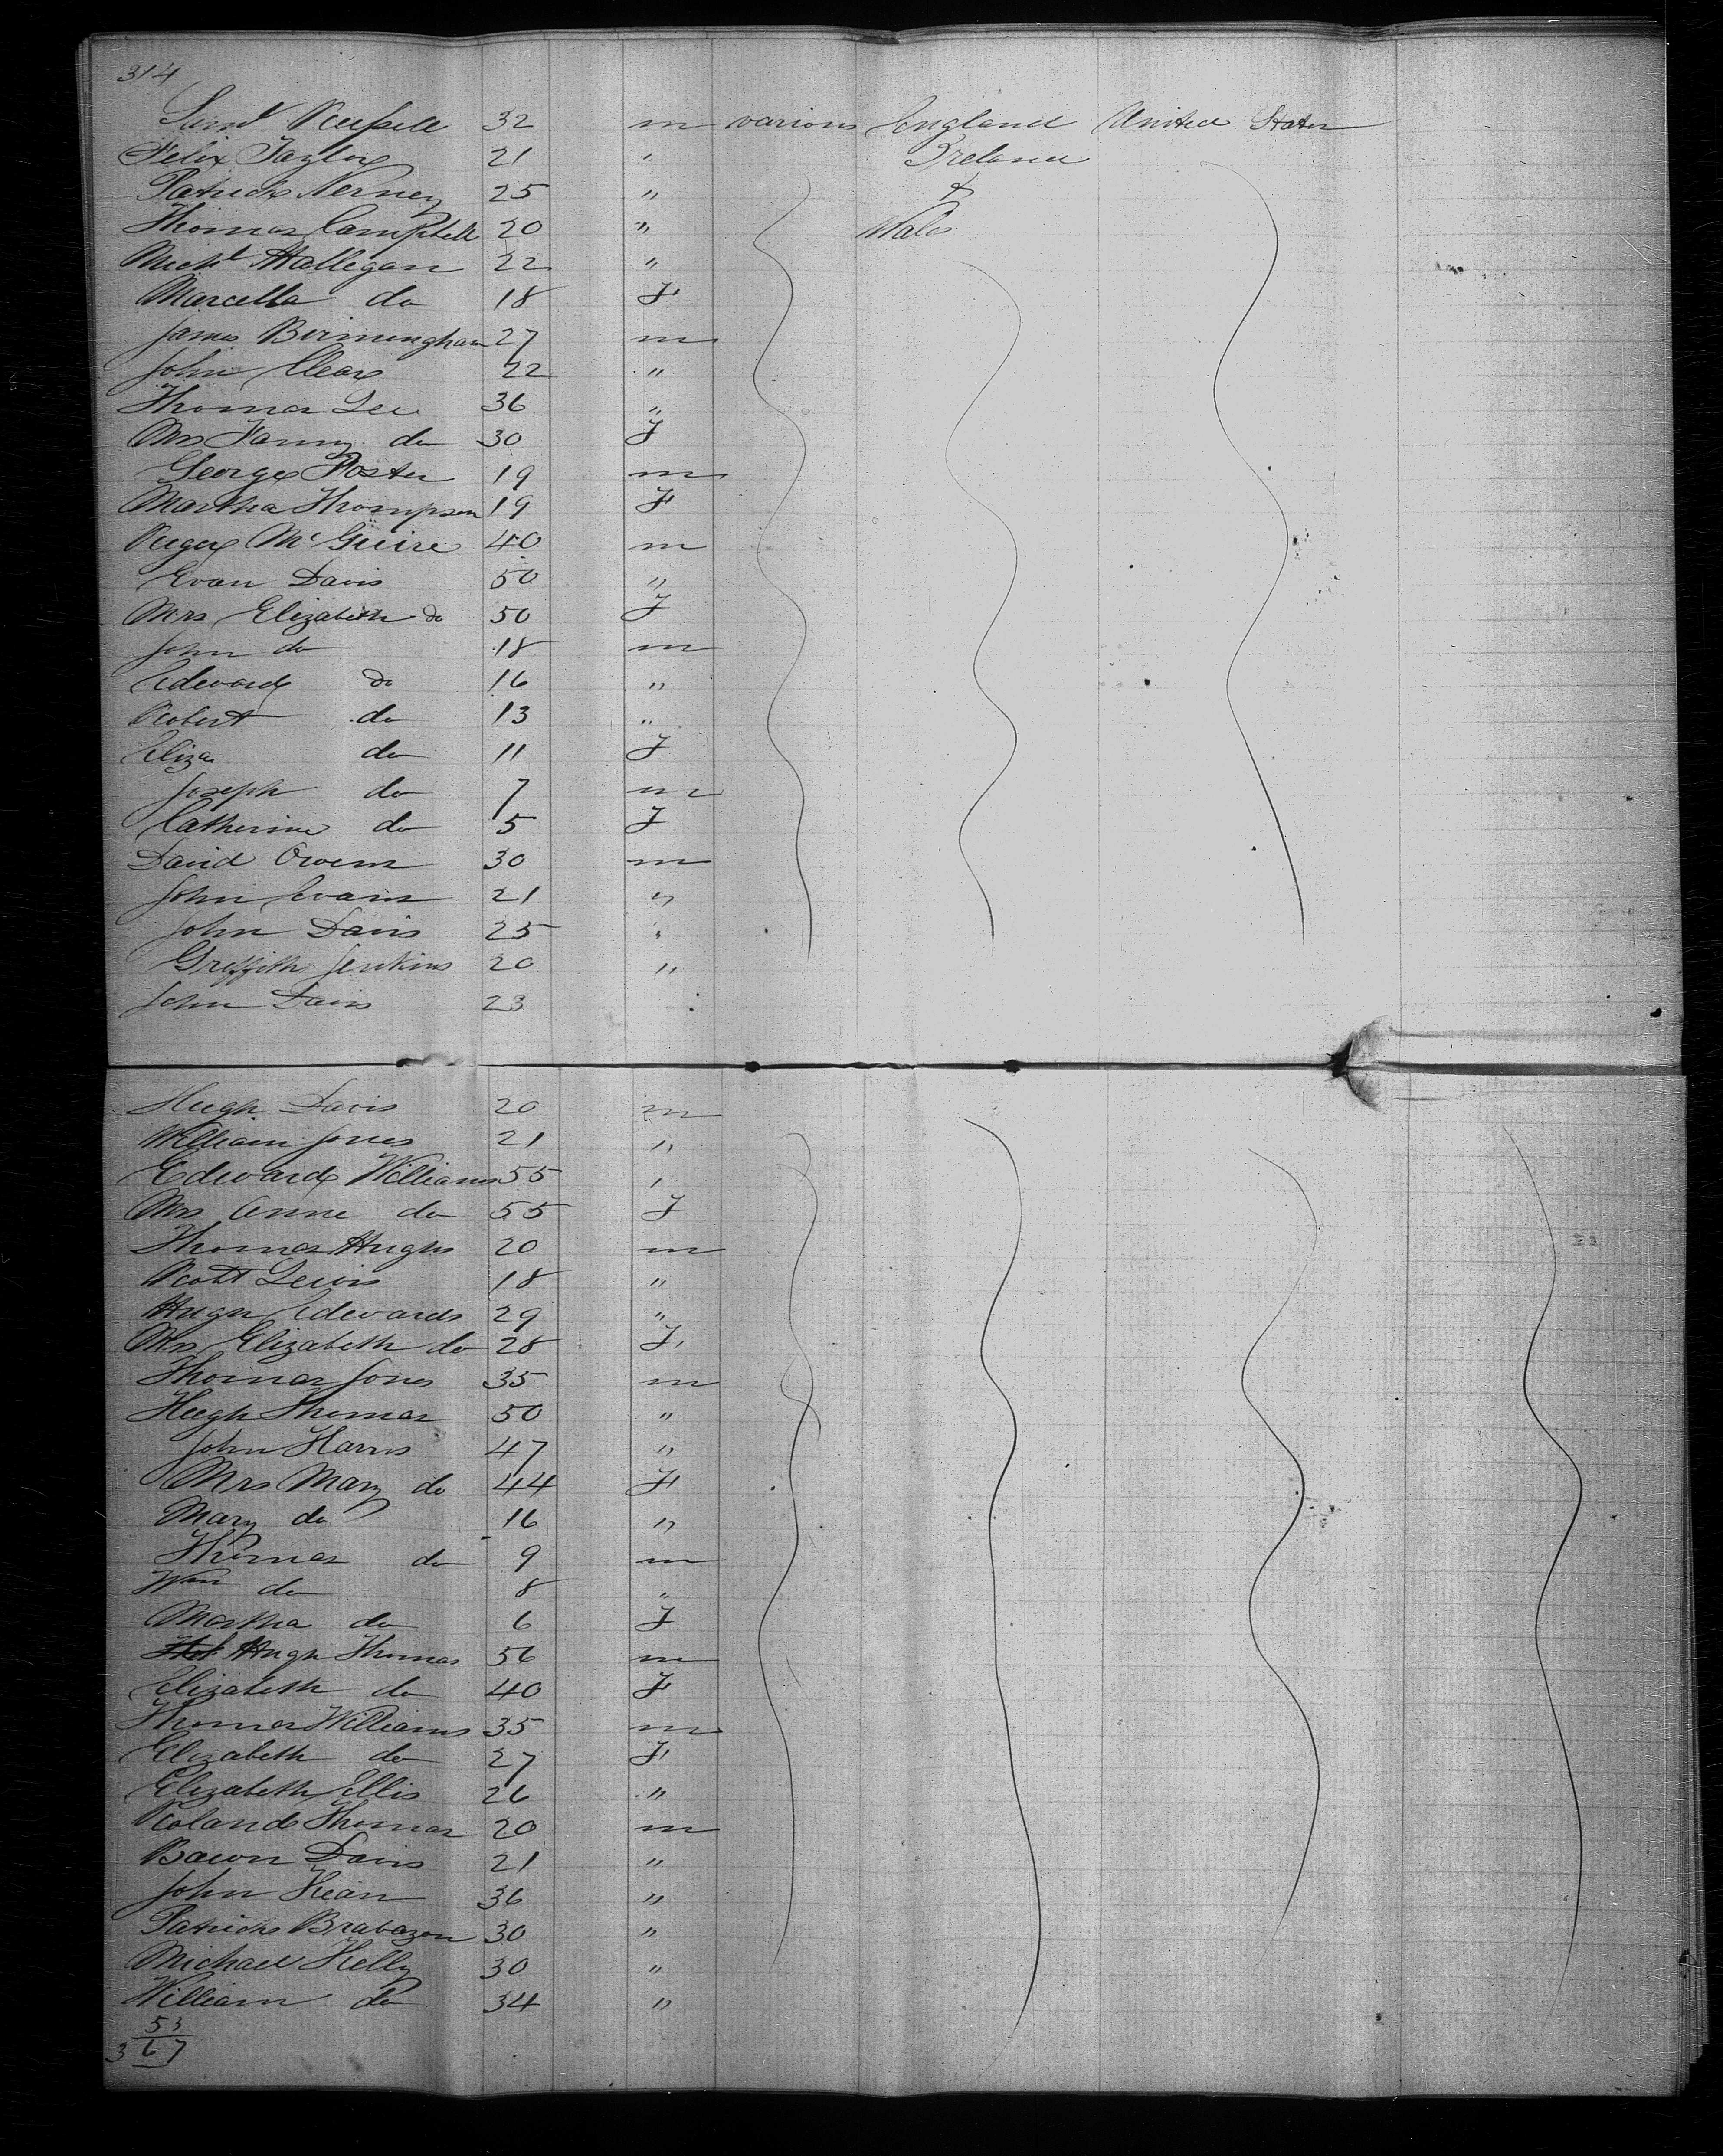 314
Saml Russell 32 m various England United States
Felix Taylor 21 " Ireland
Patrick Nerney 25 " &
Thomas Campbell 20 " Wales
Michl Hallegan 22 "
Marcella do 18 F
James Birmingham 27 m
John Clear 22 "
Thomas Lee 36 "
Mrs Fanny do 30 F
George Foster 19 m
Martha Thompson 19 F
McGuire 40 m
Evan Davis 50 "
Mrs Elizabeth do 50 F
John do 18 m
Edward do 16 "
Robert do 13 "
Eliza do 11 F
Joseph do 7 m
Catherine do 5 F
David Owens 30 m
John Evans 21 "
John Davis 25 "
Griffith Jenkins 20 "
John Davis 23
Hugh Davis 20 m
William Jones 21 "
Edward Williams 55 "
Mrs Anne do 55 F
Thomas Hughs 20 m
Robt Lewis 18 "
Hugh Edwards 29 "
Mrs Elizabeth do 28 F
Thomas Jones 35 m
Hugh Thomas 50 "
John Harris 47 "
Mrs Mary do 44 F
Mary do 16 "
Thomas do 9 m
Wm do 8 "
Martha do 6 F
Hugh Thomas 56 m
Elizabeth do 40 F
Thomas Williams 35 m
Elizabeth do 27 F
Elizabeth Ellis 26 "
Roland Thomas 20 m
Davis 21 "
John Kean 36 "
Patrick Brabazon 30 "
Michael Kelly 30 "
William do 34 "
53
367